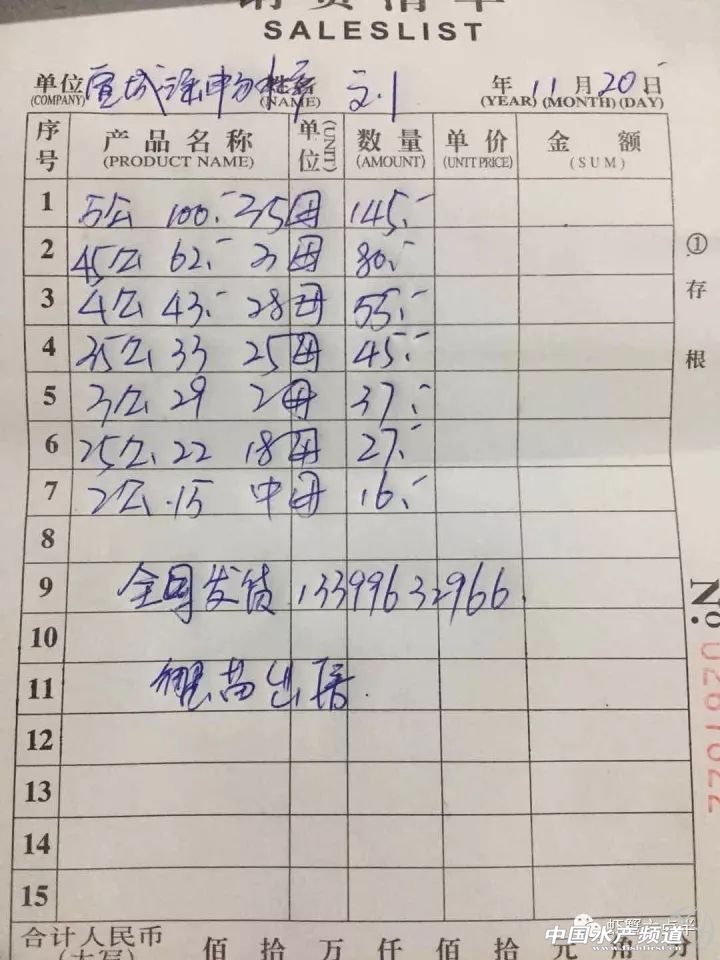 销货清单
SALESLIST
单位 宣城 年 11 月 20 日
(COMPANY) (NAME) (YEAR) (MONTH) (DAY)
序号 产品名称 单位 数量 单价 金额
(PRODUCT NAME) (UNIT) (AMOUNT) (UNIT PRICE) (SUM)
1 5公 100.- 35母 145.-
2 45公 62.- 3母 80.-
3 4公 43.- 28母 55.-
4 35公 33 25母 45.-
5 3公 29 2母 37.-
6 25公 22 18母 27.-
7 2公 15 中母 16.-
8
9 全国发货 13399632966
10
11 蟹苗出售
12
13
14
15
合计人民币 佰 拾 万 仟 佰 拾 元 角 分
(大写)
①存根
No. 0281022
虾蟹六点半
中国水产频道
www.fishfirst.cn